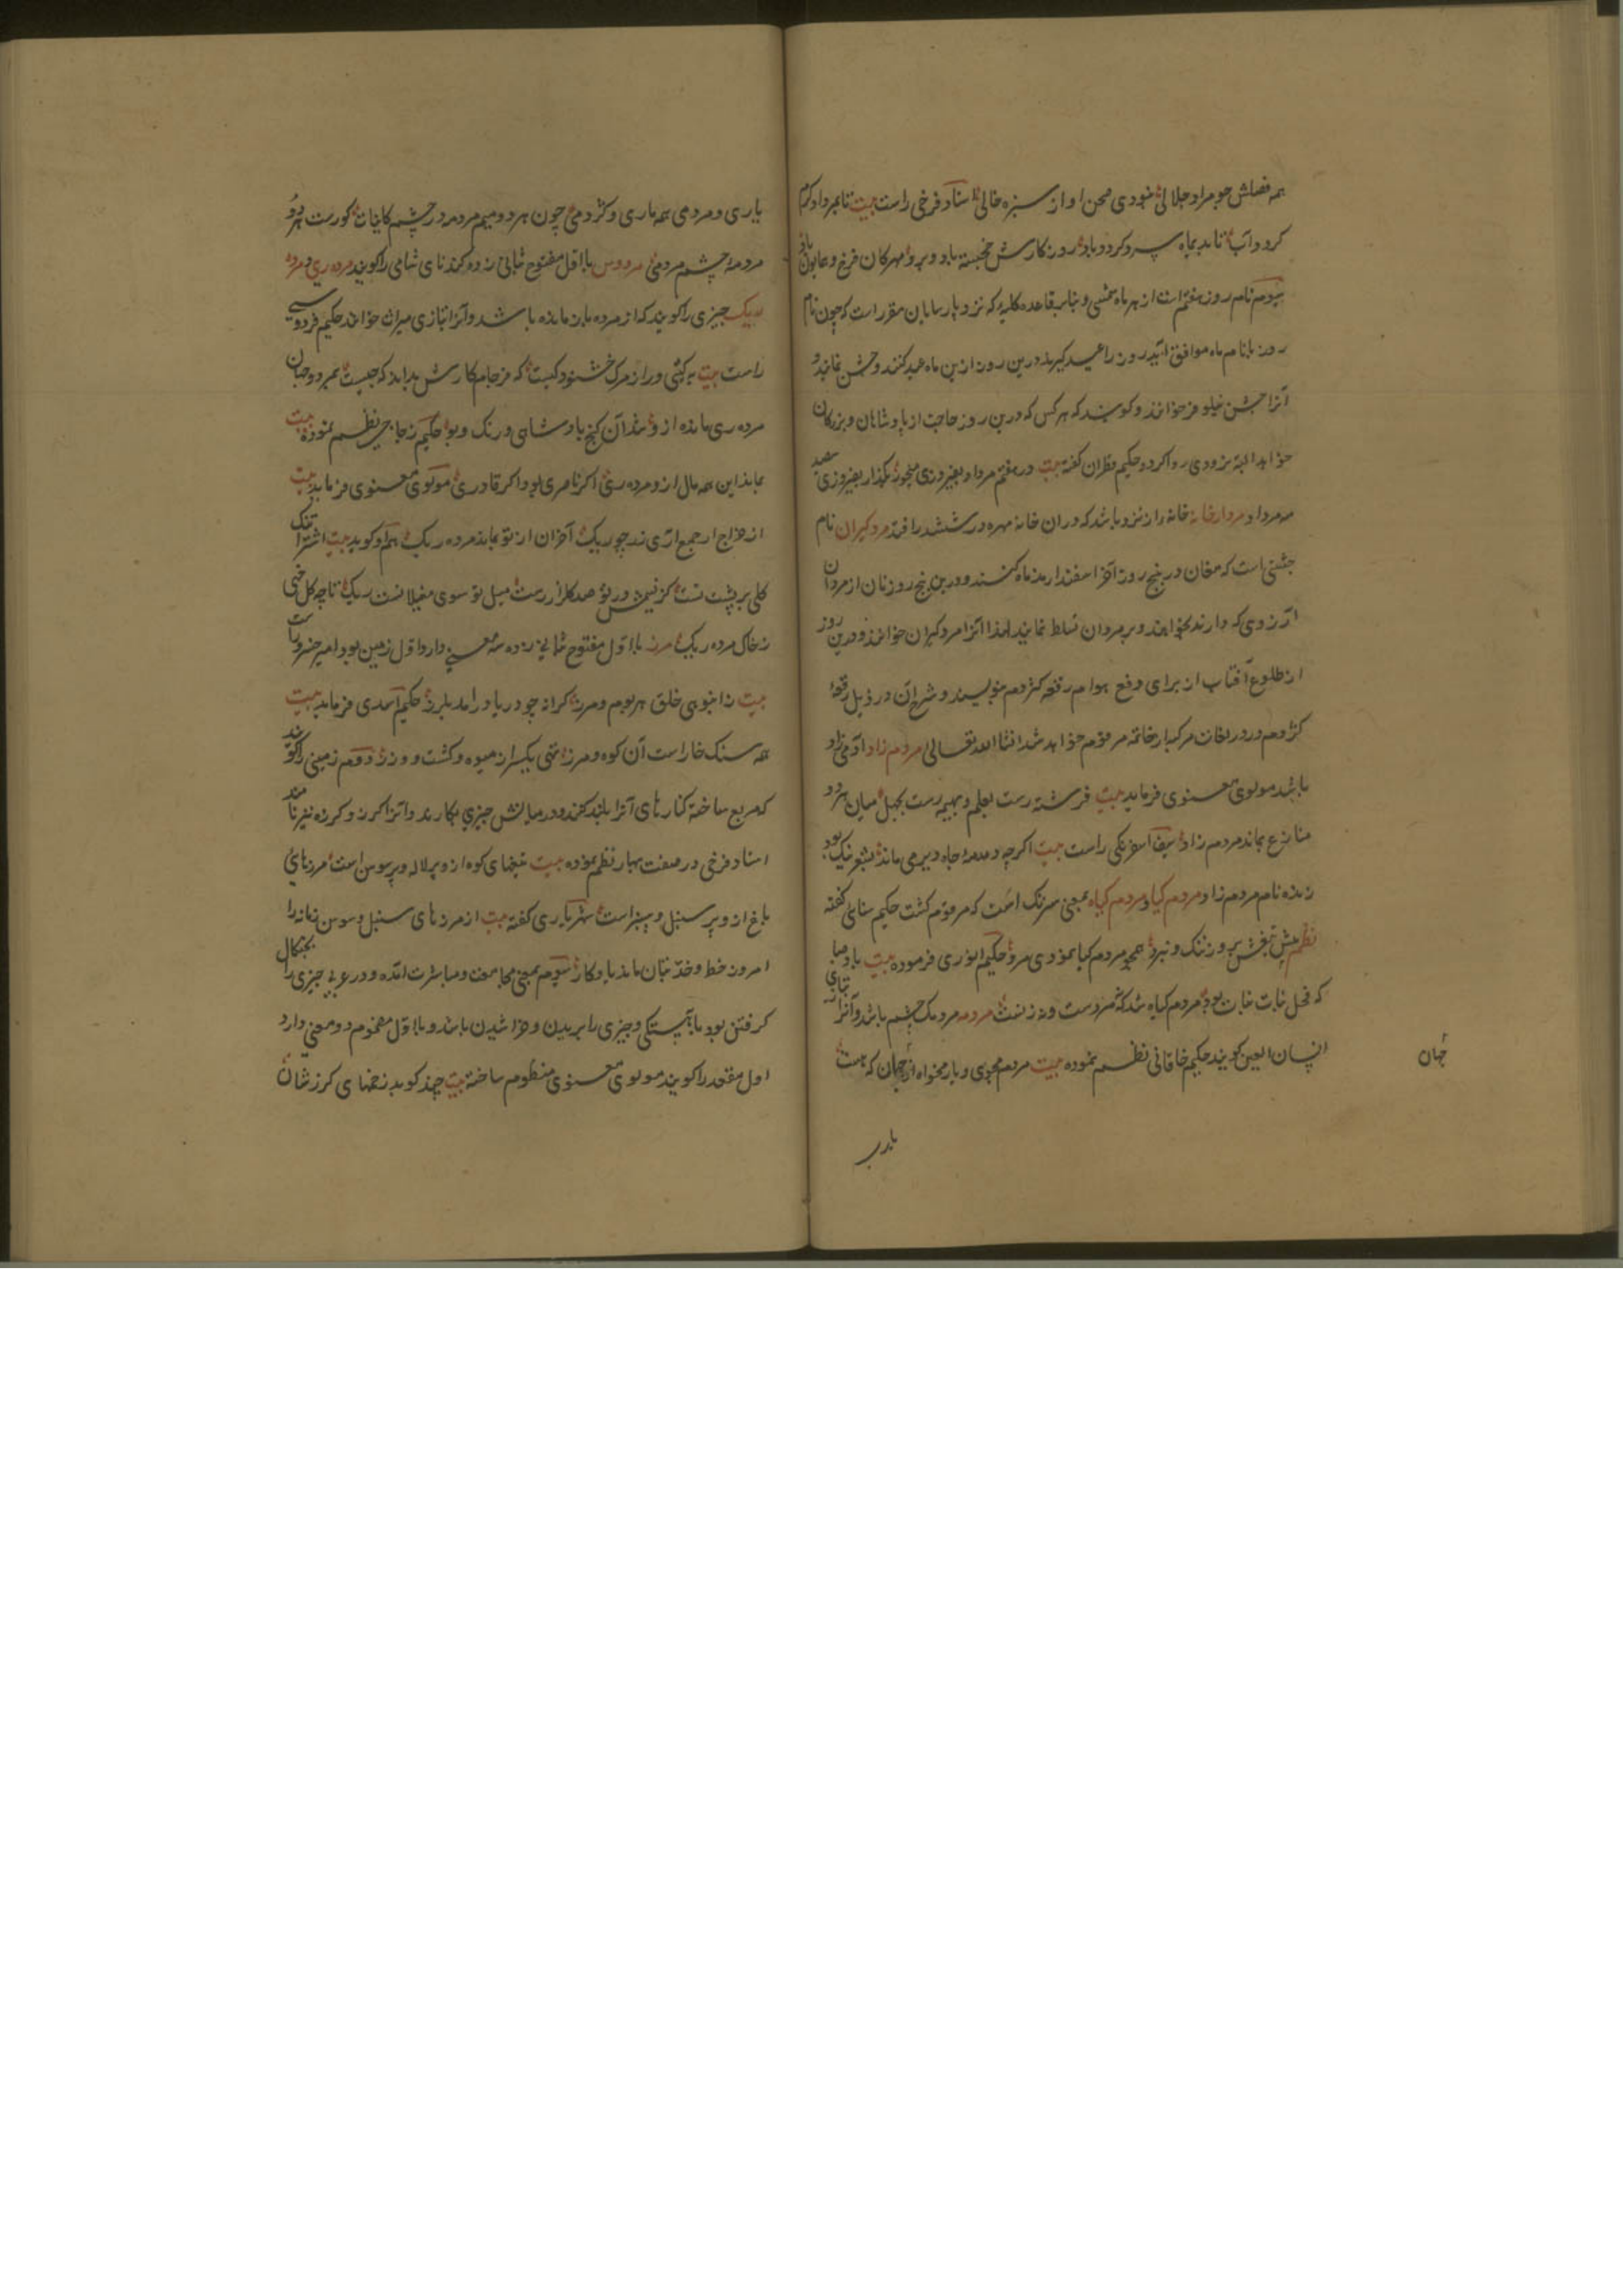 همه فصلش چو مرداد جلالی نبودی صحن او از سبزه خالی استاد فرخی راست بیت تا بمرداد کرم
کردد آب تا بدیماه سرد کردد باد روزکارش خجسته باد و برو مهرکان فرخ و همایون باد
سیوم نام روز هفتم است از هر ماه شمسی و بنابر قاعده کلیه که نزد پارسایان مقرر است که چون نام
روز با نام ماه موافق آید آن روز را عید کیرند درین روز ازین ماه عید کنند و جشن نمایند و
آنرا جشن نیلوفر خوانند و کویند که هر کس که درین روز حاجت از پادشاهان و بزرکان
خواهد البته بزودی روا کردد حکیم قطران کفته بیت در هفتم مرداد بفیروزی
مه مرداد مردارخانه خانه را از نرد باشد که در آن خانه مهره در ششدر افتد مردکیران نام
جشنی است که مغان در پنج روز آخر اسفندارمذ ماه کنند و درین پنج روز زنان از مردان
آرزوی که دارند بخواهند و بر مردان تسلط نمایند لهذا آنرا مردکیران خوانند و درین روز
از طلوع آفتاب از برای دفع هوام رقعه کژدم نویسند و شرح آن در ذیل رقعه
کژدم در در لغات مرکبه از خاتمه مرقوم خواهد شد انشا الله تعالی مردم زاد آدمی زاد
باشد مولوی معنوی فرماید بیت فرشته رست بعلم و بهیمه رست بجهل میان هر دو
منازع بماند مردم زاد سیف اسفرنکی راست بیت اکرچه دمدمه جاه دیر می ماند بشعر نیک بود
زنده نام مردم زاد و مردم کیا و مردم کیاه بمعنی سترنک است که مرقوم کشت حکیم سنائی کفته
نظم پیش تیغش بروز ننک و نبرد همچو مردم کیا نمودی مرد حکیم انوری فرموده بیت باد صبا
که فحل بنات نبات بود مردم کیاه شد که نه مردست و نه زنست مردمه مردمک چشم باشد و آنرا بتازی
انسان العین کویند حکیم خاقانی نظم نموده بیت مردم مجوی و یار مخواه از جهان که هست
جهان
یاری و مردمی همه ماری و کژدمی چون هر دو میم مردمه در چشم کاینات کورست هر دو
مردمه چشم مردمی مردوس با اول مفتوح بثانی زده کمند نای شامی را کویند مرده ری و مرده
ریک چیزی را کویند که از مرده باز مانده باشد و آنرا بتازی میراث خوانند حکیم فردوسی
راست بیت به کیتی ورا از مرک خشنود کیست که فرجام کارش بداند که چیست بمیرد و جهان
مرده ری مانده ازو شد آن کنج با و شاهی و رنک و بو حکیم زجاجی نظم نموده بیت
بماند این همه مال ازو مرده ری اکر ناصری بود اکر قادری مولوی معنوی فرماید بیت
از خراج ار جمع آری زر چو ریک آخر آن از تو بماند مرده ریک هم او کوید بیت اشتر تنک
کلی بر پشت تست کز نسیمش در تو صد کلزار رست میل تو سوی مغیلانست و ریک تا چه کل چینی
ز خاک مرده ریک مرز با اول مفتوح بثانی زده سه معنی دارد اول زمین بود امیر خسرو راست
بیت ز انبوهی خلق هر بوم و مرز کرانه چو دریا در آمد بلرز حکیم اسدی فرماید بیت
همه سنک خار است آن کوه و مرز تهی یکسر از میوه و کشت و ورز دوم زمینی را کویند
که مربع ساخته کنارهای آنرا بلند کنند و در میانش چیزی بکارند و آنرا کرز و کرزه نیز نامند
استاد فرخی در صفت بهار نظم نموده بیت تیغهای کوه ازو پر لاله و پر سوسن است مرزهای
باغ ازو پر سنبل و پر عبهر است شهریاری کفته بیت از مرزهای سنبل و سوسن زمانه را
امروز خط و خد بتان ماند یادکار سیوم بمعنی مجامعت و مباشرت آمده و در عربی چیزی را بچنکال
کرفتن بود با آهستکی و چیزی را بریدن و خراشیدن باشد و با اول مضموم دو معنی دارد
اول مقعد را کویند مولوی معنوی منظوم ساخته بیت چند کوید زخمهای کرزشان